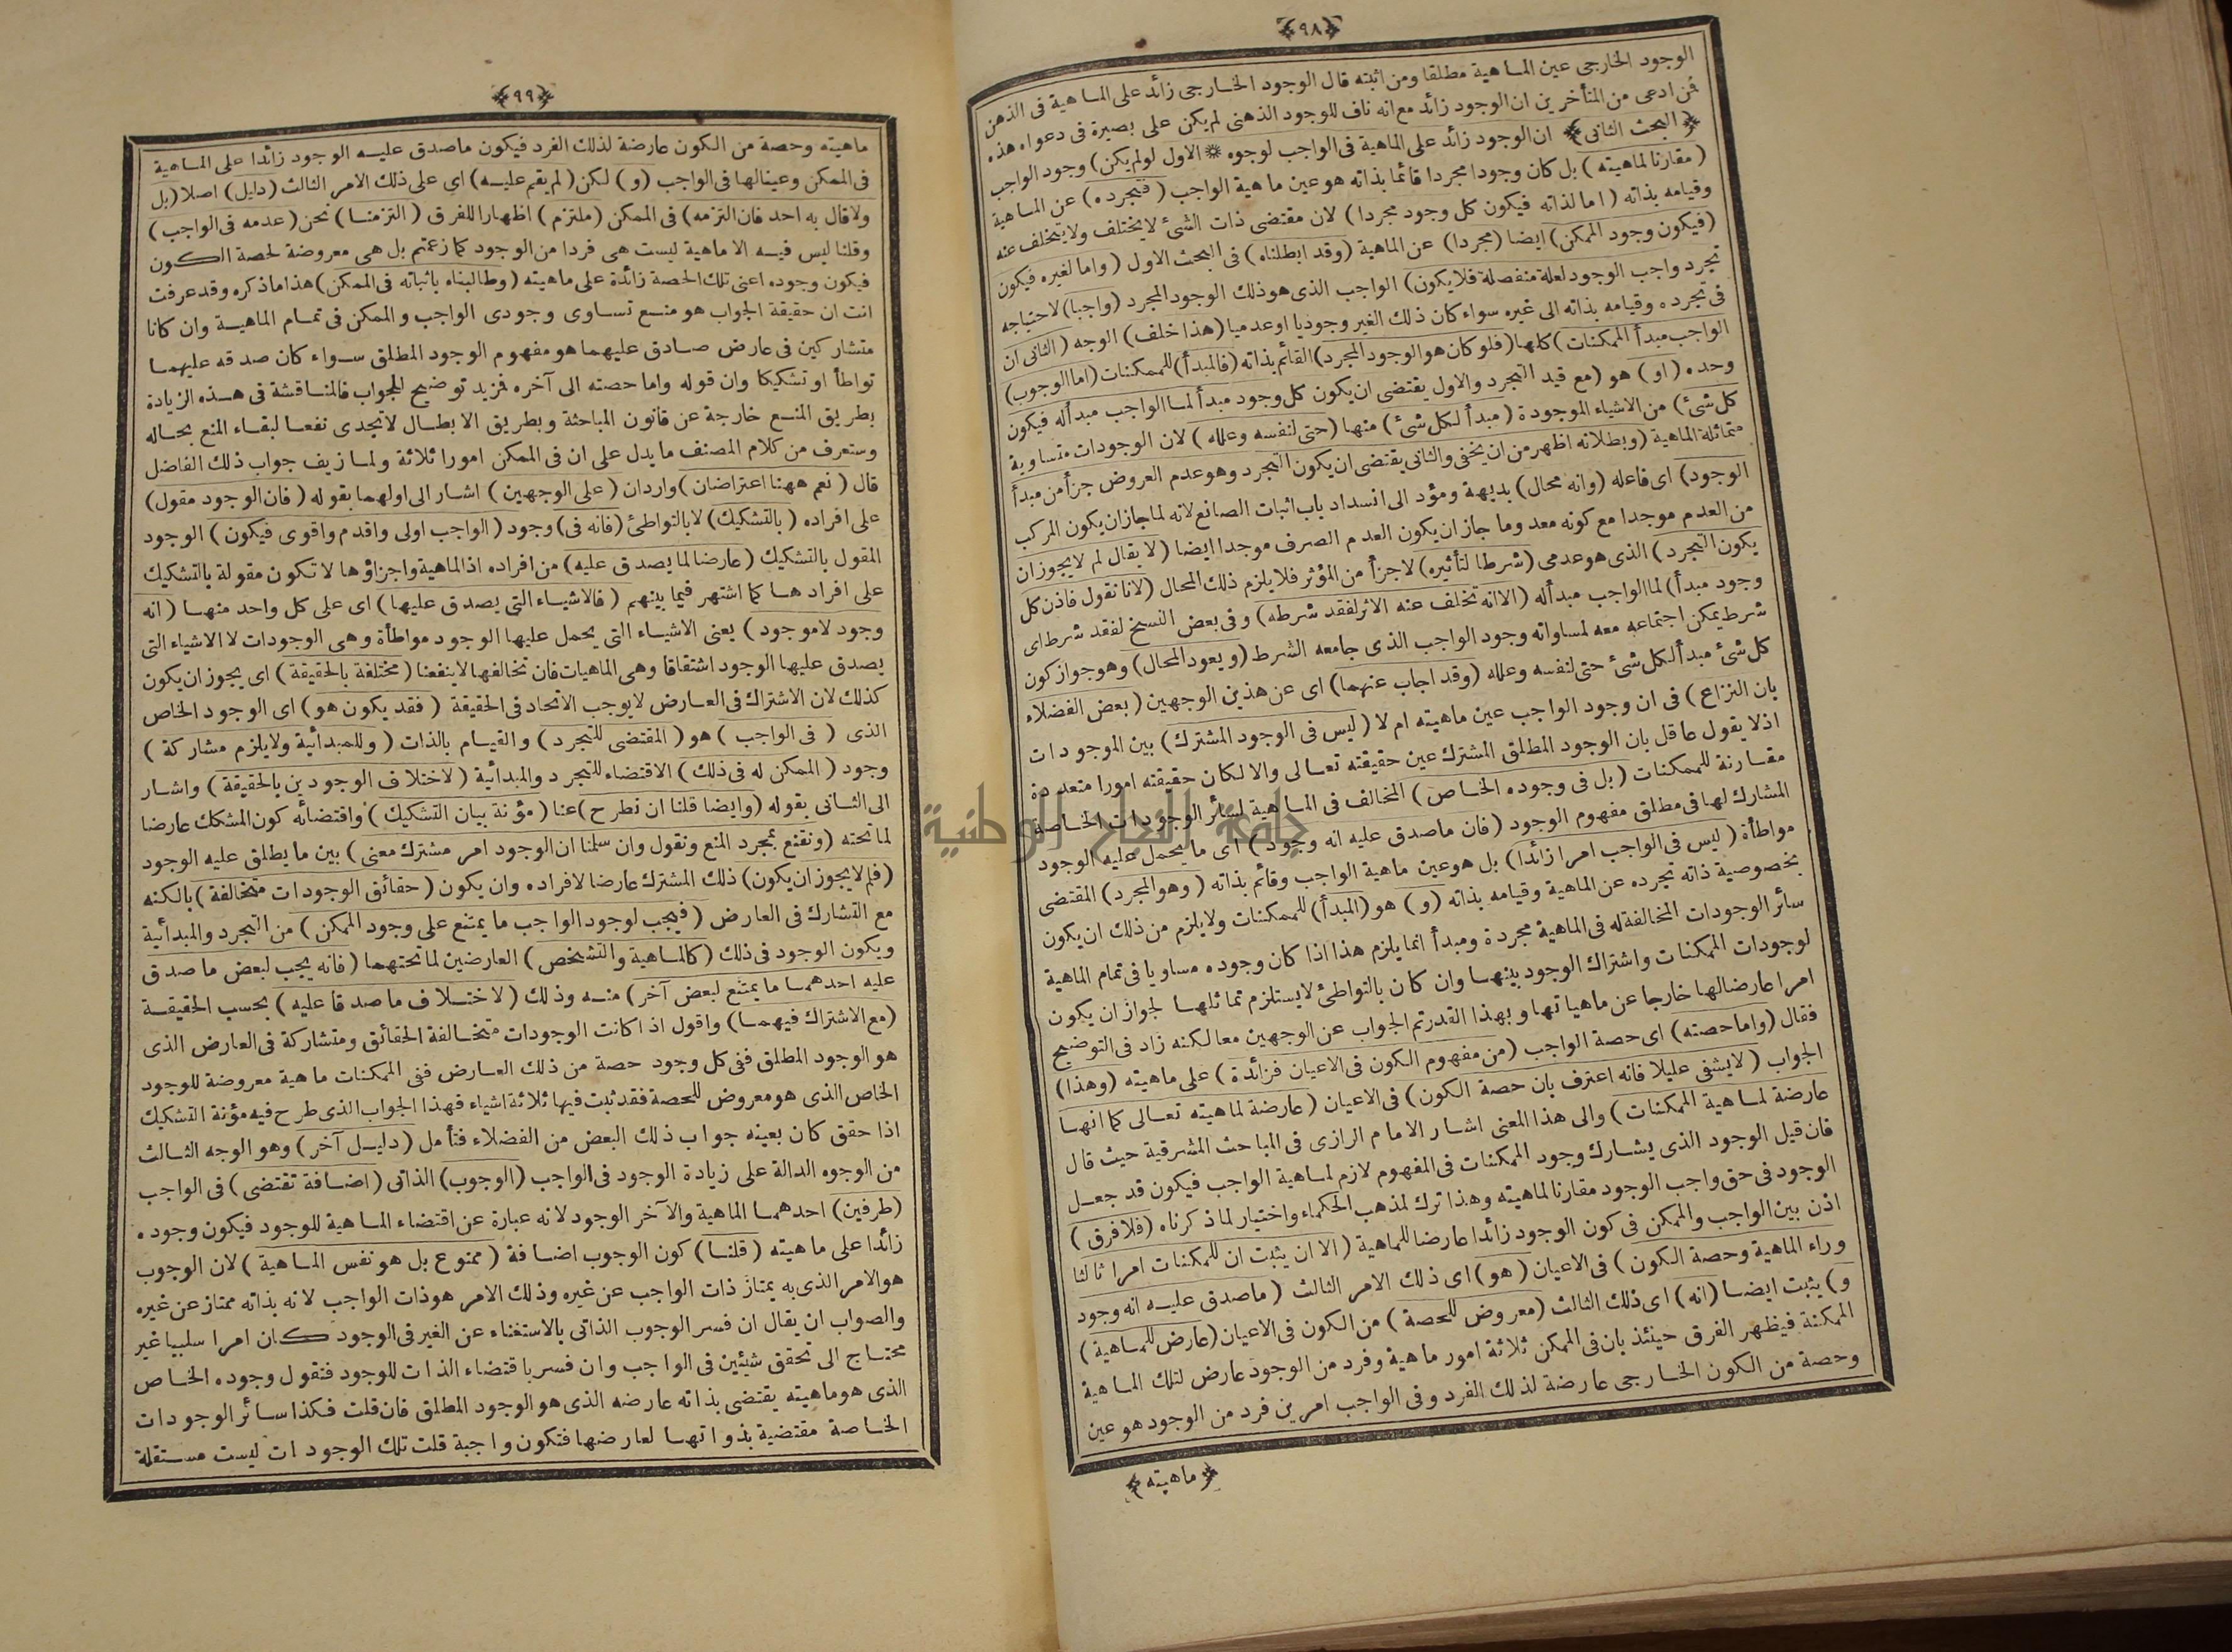 ﴿٩٨﴾
الوجود الخارجى عين الماهية مطلقا ومن اثبته قال الوجود الخارجى زائد على الماهية فى الذهن
فمن ادعى من المتأخرين ان الوجود زائد مع انه ناف للوجود الذهنى لم يكن على بصيرة فى دعواه هذه
﴿البحث الثانى﴾ ان الوجود زائد على الماهية فى الواجب لوجوه * الاول لو لم يكن) وجود الواجب
(مقارنا لماهيته) بل كان وجودا مجردا قائما بذاته هو عين ماهية الواجب (فتجرده) عن الماهية
وقيامه بذاته (اما لذاته فيكون كل وجود مجردا) لان مقتضى ذات الشئ لا يختلف ولا يتخلف عنه
(فيكون وجود الممكن) ايضا (مجردا) عن الماهية (وقد ابطلناه) فى البحث الاول (واما لغيره فيكون
تجرد واجب الوجود لعلة منفصلة فلا يكون) الواجب الذى هو ذلك الوجود المجرد (واجبا) لاحتياجه
فى تجرده وقيامه بذاته الى غيره سواء كان ذلك الغير وجوديا او عدميا (هذا خلف) الوجه (الثانى ان
الواجب مبدأ الممكنات) كلها (فلو كان هو الوجود المجرد) القائم بذاته (فالمبدأ) للممكنات (اما الوجود)
وحده (او) هو (مع قيد التجرد والاول يقتضى ان يكون كل وجود مبدأ لما الواجب مبدأ له فيكون
كل شئ) من الاشياء الموجودة (مبدأ لكل شئ) منها (حتى لنفسه وعلله) لان الوجودات متساوية
متماثلة الماهية (وبطلانه اظهر من ان يخفى والثانى يقتضى ان يكون التجرد وهو عدم العروض جزأ من مبدأ
الوجود) اى فاعله (وانه محال) بديهة ومؤد الى انسداد باب اثبات الصانع لانه لما جاز ان يكون المركب
من العدم موجدا مع كونه معدوما جاز ان يكون العدم الصرف موجدا ايضا (لا يقال لم لا يجوز ان
يكون التجرد) الذى هو عدمى (شرطا لتأثيره) لا جزأ من المؤثر فلا يلزم ذلك المحال (لانا نقول فاذن كل
وجود مبدأ) لما الواجب مبدأ له (الا انه تخلف عنه الاثر لفقد شرطه) وفى بعض النسخ لفقد شرط اى
شرط يمكن اجتماعه معه لمساواته وجود الواجب الذى جامعه الشرط (ويعود المحال) وهو جواز كون
كل شئ مبدأ لكل شئ حتى لنفسه وعلله (وقد اجاب عنهما) اى عن هذين الوجهين (بعض الفضلاء
بان النزاع) فى ان وجود الواجب عين ماهيته ام لا (ليس فى الوجود المشترك) بين الموجودات
اذ لا يقول عاقل بان الوجود المطلق المشترك عين حقيقته تعالى والا لكان حقيقته امورا متعددة
مقارنة للممكنات (بل فى وجوده الخاص) المخالف فى الماهية لسائر الوجودات الخاصة
المشارك لها فى مطلق مفهوم الوجود (فان ما صدق عليه انه وجود) اى ما يحمل عليه الوجود
مواطأة (ليس فى الواجب امرا زائدا) بل هو عين ماهية الواجب وقائم بذاته (وهو المجرد) المقتضى
بخصوصية ذاته تجرده عن الماهية وقيامه بذاته (و) هو (المبدأ) للممكنات ولا يلزم من ذلك ان يكون
سائر الوجودات المخالفة له فى الماهية مجردة ومبدأ انما يلزم هذا اذا كان وجوده مساويا فى تمام الماهية
لوجودات الممكنات واشتراك الوجود بينها وان كان بالتواطئ لا يستلزم تماثلها لجواز ان يكون
امرا عارضا لها خارجا عن ماهياتها وبهذا القدر تم الجواب عن الوجهين معا لكنه زاد فى التوضيح
فقال (واما حصته) اى حصة الواجب (من مفهوم الكون فى الاعيان فزائدة) على ماهيته (وهذا)
الجواب (لا يشفى عليلا فانه اعترف بان حصة الكون) فى الاعيان (عارضة لماهيته تعالى كما انها
عارضة لماهية الممكنات) والى هذا المعنى اشار الامام الرازى فى المباحث المشرقية حيث قال
فان قيل الوجود الذى يشارك وجود الممكنات فى المفهوم لازم لماهية الواجب فيكون قد جعل
الوجود فى حق واجب الوجود مقارنا لماهيته وهذا ترك لمذهب الحكماء واختيار لما ذكرناه (فلا فرق)
اذن بين الواجب والممكن فى كون الوجود زائدا عارضا للماهية (الا ان يثبت ان للممكنات امرا ثالثا
وراء الماهية وحصة الكون) فى الاعيان (هو) اى ذلك الامر الثالث (ما صدق عليه انه وجود
و) يثبت ايضا (انه) اى ذلك الثالث (معروض للحصة) من الكون فى الاعيان (عارض للماهية)
الممكنة فيظهر الفرق حينئذ بان فى الممكن ثلاثة امور ماهية وفرد من الوجود عارض لتلك الماهية
وحصة من الكون الخارجى عارضة لذلك الفرد وفى الواجب امرين فرد من الوجود هو عين
﴿ماهيته﴾
﴿٩٩﴾
ماهيته وحصة من الكون عارضة لذلك الفرد فيكون ما صدق عليه الوجود زائدا على الماهية
فى الممكن وعينا لها فى الواجب (و) لكن (لم يقم عليه) اى على ذلك الامر الثالث (دليل) اصلا (بل
ولا قال به احد فان التزمه) فى الممكن (ملتزم) اظهارا للفرق (التزمنا) نحن (عدمه فى الواجب)
وقلنا ليس فيه الا ماهية ليست هى فردا من الوجود كما زعمتم بل هى معروضة لحصة الكون
فيكون وجوده اعنى تلك الحصة زائدة على ماهيته (وطالبناه باثباته فى الممكن) هذا ما ذكره وقد عرفت
انت ان حقيقة الجواب هو منع تساوى وجودى الواجب والممكن فى تمام الماهية وان كانا
متشاركين فى عارض صادق عليهما هو مفهوم الوجود المطلق سواء كان صدقه عليهما
تواطأ او تشكيكا وان قوله واما حصته الى آخره فمزيد توضيح للجواب فالمناقشة فى هذه الزيادة
بطريق المنع خارجة عن قانون المباحثة وبطريق الابطال لا تجدى نفعا لبقاء المنع بحاله
وستعرف من كلام المصنف ما يدل على ان فى الممكن امورا ثلاثة ولما زيف جواب ذلك الفاضل
قال (نعم ههنا اعتراضان) واردان (على الوجهين) اشار الى اولهما بقوله (فان الوجود مقول)
على افراده (بالتشكيك) لا بالتواطئ (فانه فى) وجود (الواجب اولى واقدم واقوى فيكون) الوجود
المقول بالتشكيك (عارضا لما يصدق عليه) من افراده اذ الماهية واجزاؤها لا تكون مقولة بالتشكيك
على افرادها كما اشتهر فيما بينهم (فالاشياء التى يصدق عليها) اى على كل واحد منها (انه
وجود لا موجود) يعنى الاشياء التى يحمل عليها الوجود مواطأة وهى الوجودات لا الاشياء التى
يصدق عليها الوجود اشتقاقا وهى الماهيات فان تخالفها لا ينفعنا (مختلفة بالحقيقة) اى يجوز ان يكون
كذلك لان الاشتراك فى العارض لا يوجب الاتحاد فى الحقيقة (فقد يكون هو) اى الوجود الخاص
الذى (فى الواجب) هو (المقتضى للتجرد) والقيام بالذات (وللمبدائية ولا يلزم مشاركة)
وجود (الممكن له فى ذلك) الاقتضاء للتجرد والمبدائية (لاختلاف الوجودين بالحقيقة) واشار
الى الثانى بقوله (وايضا قلنا ان نطرح) عنا (مؤنة بيان التشكيك) واقتضائه كون المشكك عارضا
لما تحته (ونقنع بمجرد المنع ونقول وان سلمنا ان الوجود امر مشترك معنى) بين ما يطلق عليه الوجود
(فلم لا يجوز ان يكون) ذلك المشترك عارضا لافراده وان يكون (حقائق الوجودات متخالفة) بالكنه
مع التشارك فى العارض (فيجب لوجود الواجب ما يمتنع على وجود الممكن) من التجرد والمبدائية
ويكون الوجود فى ذلك (كالماهية والتشخص) العارضين لما تحتهما (فانه يجب لبعض ما صدق
عليه احدهما ما يمتنع لبعض آخر) منه وذلك (لاختلاف ما صدقا عليه) بحسب الحقيقة
(مع الاشتراك فيهما) واقول اذا كانت الوجودات متخالفة الحقائق ومتشاركة فى العارض الذى
هو الوجود المطلق ففى كل وجود حصة من ذلك العارض ففى الممكنات ماهية معروضة للوجود
الخاص الذى هو معروض للحصة فقد ثبت فيها ثلاثة اشياء فهذا الجواب الذى طرح فيه مؤنة التشكيك
اذا حقق كان بعينه جواب ذلك البعض من الفضلاء فتأمل (دليل آخر) وهو الوجه الثالث
من الوجوه الدالة على زيادة الوجود فى الواجب (الوجوب) الذاتى (اضافة تقتضى) فى الواجب
(طرفين) احدهما الماهية والآخر الوجود لانه عبارة عن اقتضاء الماهية للوجود فيكون وجوده
زائدا على ماهيته (قلنا) كون الوجوب اضافة (ممنوع بل هو نفس الماهية) لان الوجوب
هو الامر الذى به يمتاز ذات الواجب عن غيره وذلك الامر هو ذات الواجب لانه بذاته ممتاز عن غيره
والصواب ان يقال ان فسر الوجوب الذاتى بالاستغناء عن الغير فى الوجود كان امرا سلبيا غير
محتاج الى تحقق شيئين فى الواجب وان فسر باقتضاء الذات للوجود فنقول وجوده الخاص
الذى هو ماهيته يقتضى بذاته عارضه الذى هو الوجود المطلق فان قلت فكذا سائر الوجودات
الخاصة مقتضية بذواتها لعارضها فتكون واجبة قلت تلك الوجودات ليست مستقلة
جامعة النجاح الوطنية